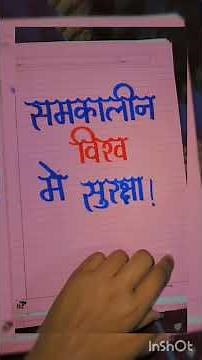 समकालीन
विश्व
मे सुरक्षा!
InShOt